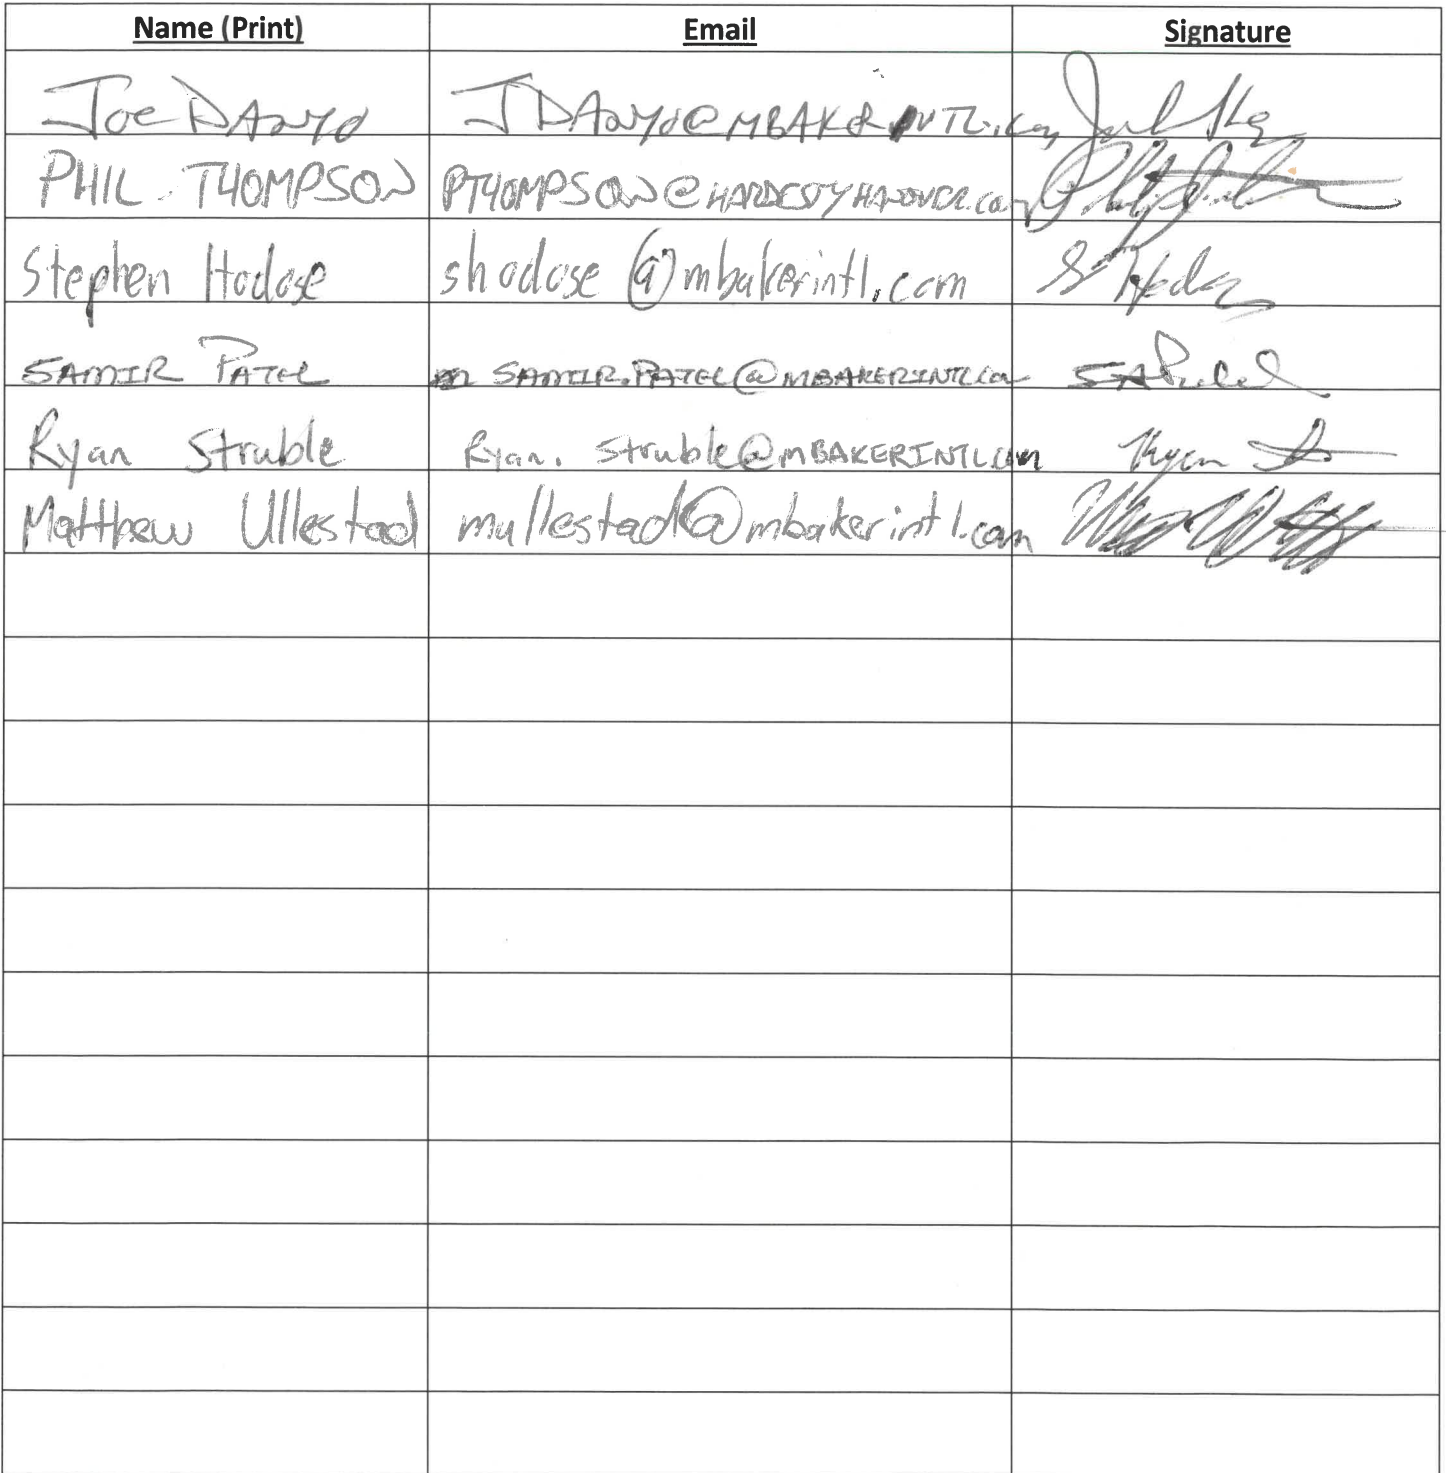 Name (Print) Email Signature
Joe DANYO JDANYO@MBAKERINTL.com
PHIL THOMPSON PTHOMPSON@HARDESTYHANOVER.com
Stephen Hodose shodose@mbakerintl.com
SAMIR PATEL SAMIR.PATEL@MBAKERINTL.com
Ryan Struble Ryan.Struble@MBAKERINTL.com Ryan
Matthew Ullestad mullestad@mbakerintl.com